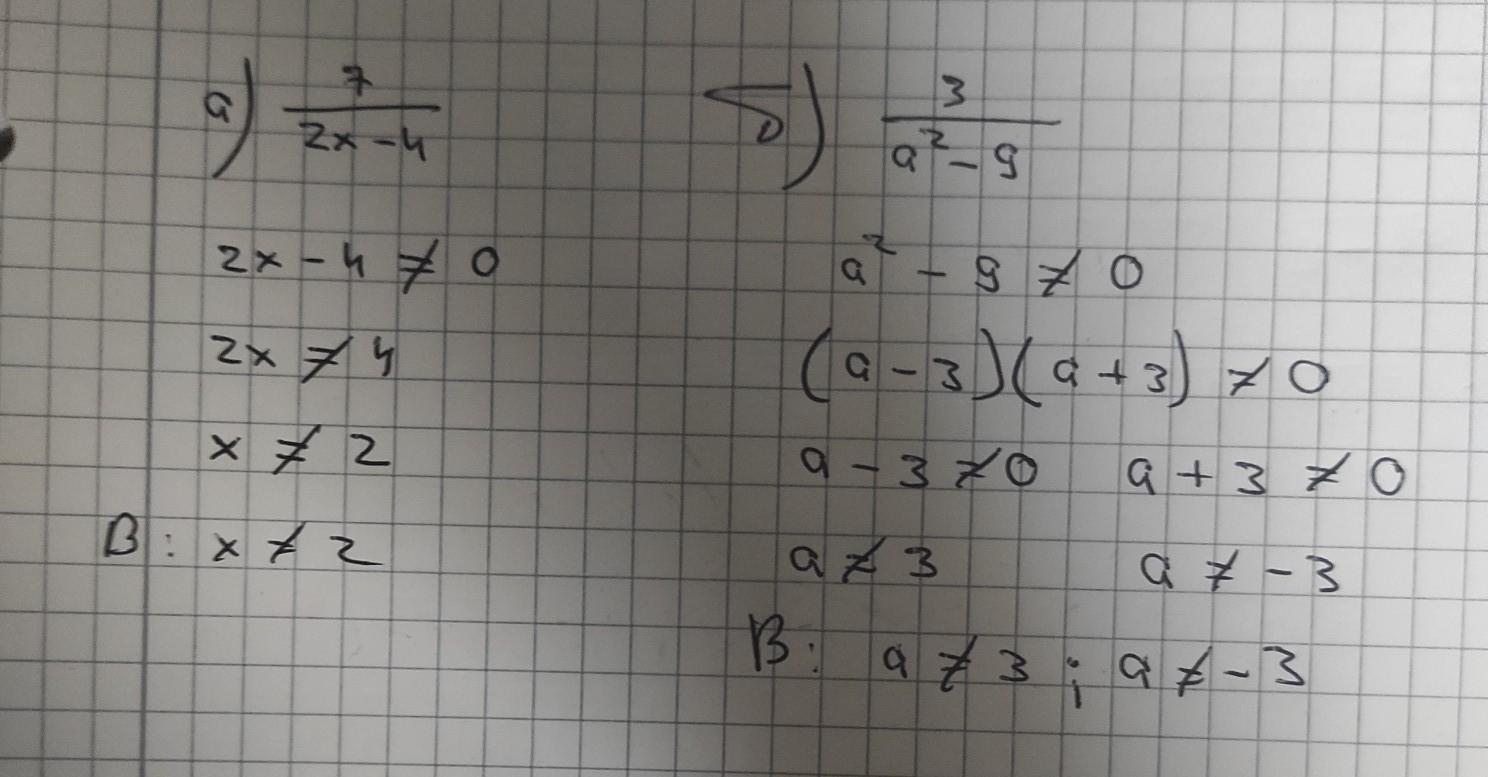 а) 7/(2x - 4)
2x - 4 ≠ 0
2x ≠ 4
x ≠ 2
В: x ≠ 2
б) 3/(a² - 9)
a² - 9 ≠ 0
(a - 3)(a + 3) ≠ 0
a - 3 ≠ 0 a + 3 ≠ 0
a ≠ 3 a ≠ -3
В: a ≠ 3 ; a ≠ -3